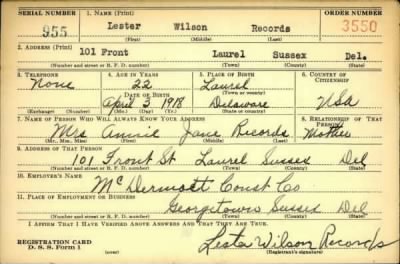 SERIAL NUMBER 1. NAME (Print) ORDER NUMBER
955 Lester Wilson Records 3550
(First) (Middle) (Last)
2. ADDRESS (Print)
101 Front Laurel Sussex Del.
(Number and street or R. F. D. number) (Town) (County) (State)
3. TELEPHONE 4. AGE IN YEARS 5. PLACE OF BIRTH 6. COUNTRY OF CITIZENSHIP
None 22 Laurel
DATE OF BIRTH
April 3 1918 Delaware USA
(Exchange) (Number) (Mo.) (Day) (Yr.) (State or country)
7. NAME OF PERSON WHO WILL ALWAYS KNOW YOUR ADDRESS 8. RELATIONSHIP OF THAT PERSON
Mrs Annie Jane Records Mother
(Mr., Mrs., Miss) (First) (Middle) (Last)
9. ADDRESS OF THAT PERSON
101 Front St Laurel Sussex Del
(Number and street or R. F. D. number) (Town) (County) (State)
10. EMPLOYER'S NAME
McDermott Const Co
11. PLACE OF EMPLOYMENT OR BUSINESS
Georgetown Sussex Del
(Number and street or R. F. D. number) (Town) (County) (State)
I AFFIRM THAT I HAVE VERIFIED ABOVE ANSWERS AND THAT THEY ARE TRUE.
REGISTRATION CARD
D. S. S. Form 1
Lester Wilson Records
(Registrant's signature)